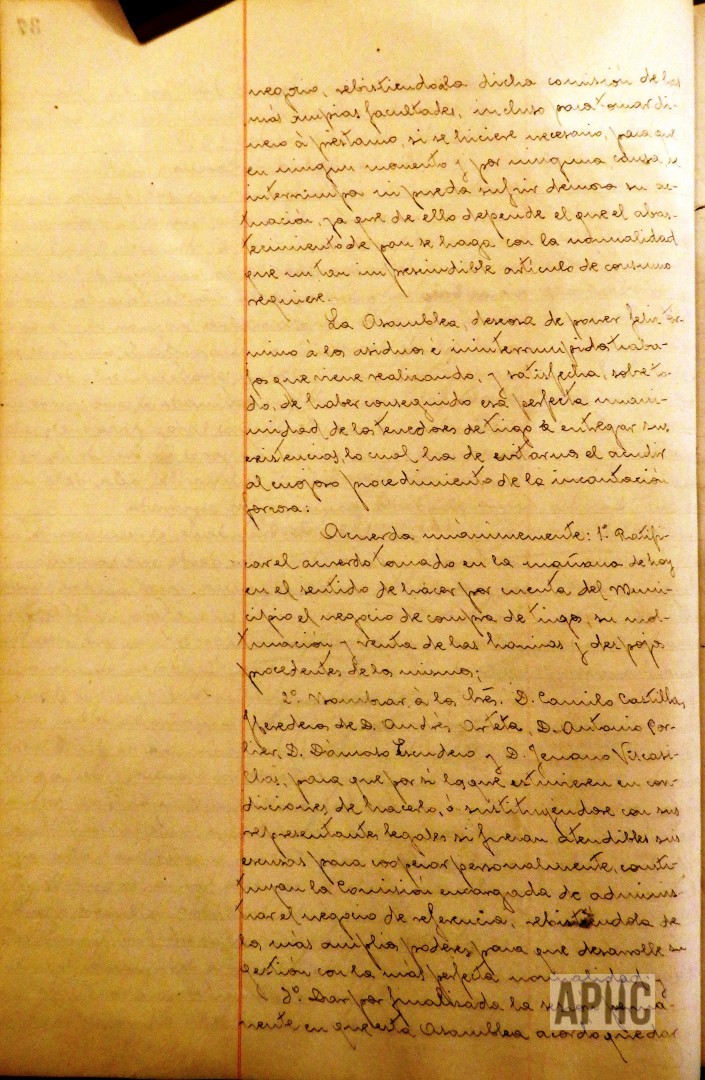 37
negocio, rebistiendola dicha comisión de las
más ampias facultades, incluso para tomar di-
nero á prestamo, si se hiciere necesario, para que
en ningun momento y por ninguna causa se
interrumpa ni pueda sufrir demora su ac-
tuación, ya que de ello depende el que el abas-
tecimiento de pan se haga con la normalidad
que un tan imprescindible artículo de consumo
requiere.
La Asamblea, deseosa de poner feliz tér-
mino á los asiduos é ininterrumpidos traba-
jos que viene realizando, y satisfecha, sobre to-
do, de haber conseguido esa perfecta unani-
midad de los tenedores de trigo á entregar sus
existencias, lo cual ha de evitarnos el acudir
al enojoso procedimiento de la incautación
forzosa:
Acuerda unánimemente: 1º Ratifi-
car el acuerdo tomado en la mañana de hoy
en el sentido de hacer por cuenta del Muni-
cipio el negocio de compra de trigos, su mol-
turación y venta de las harinas y despojos
procedentes de los mismos;
2º. Nombrar á los Srés. D. Camilo Castilla,
Herederos de D. Andrés Arteta, D. Antonio Cor-
D. Damaso Escudero y D. Jenaro Viscasi-
llas, para que por sí los que estuvieren en con-
diciones de hacerlo, ó sustituyendose con sus
representantes legales si fueran atendibles sus
escusas para cooperar personalmente, consti-
tuyan la Comisión encargada de adminis-
trar el negocio de referencia, rebistiendola de
los más amplios poderes para que desarrolle su
gestión con la más perfecta normalidad y
3º. Dar por finalizada la sesión perma-
nente en que esta Asamblea acordó quedar
APHC